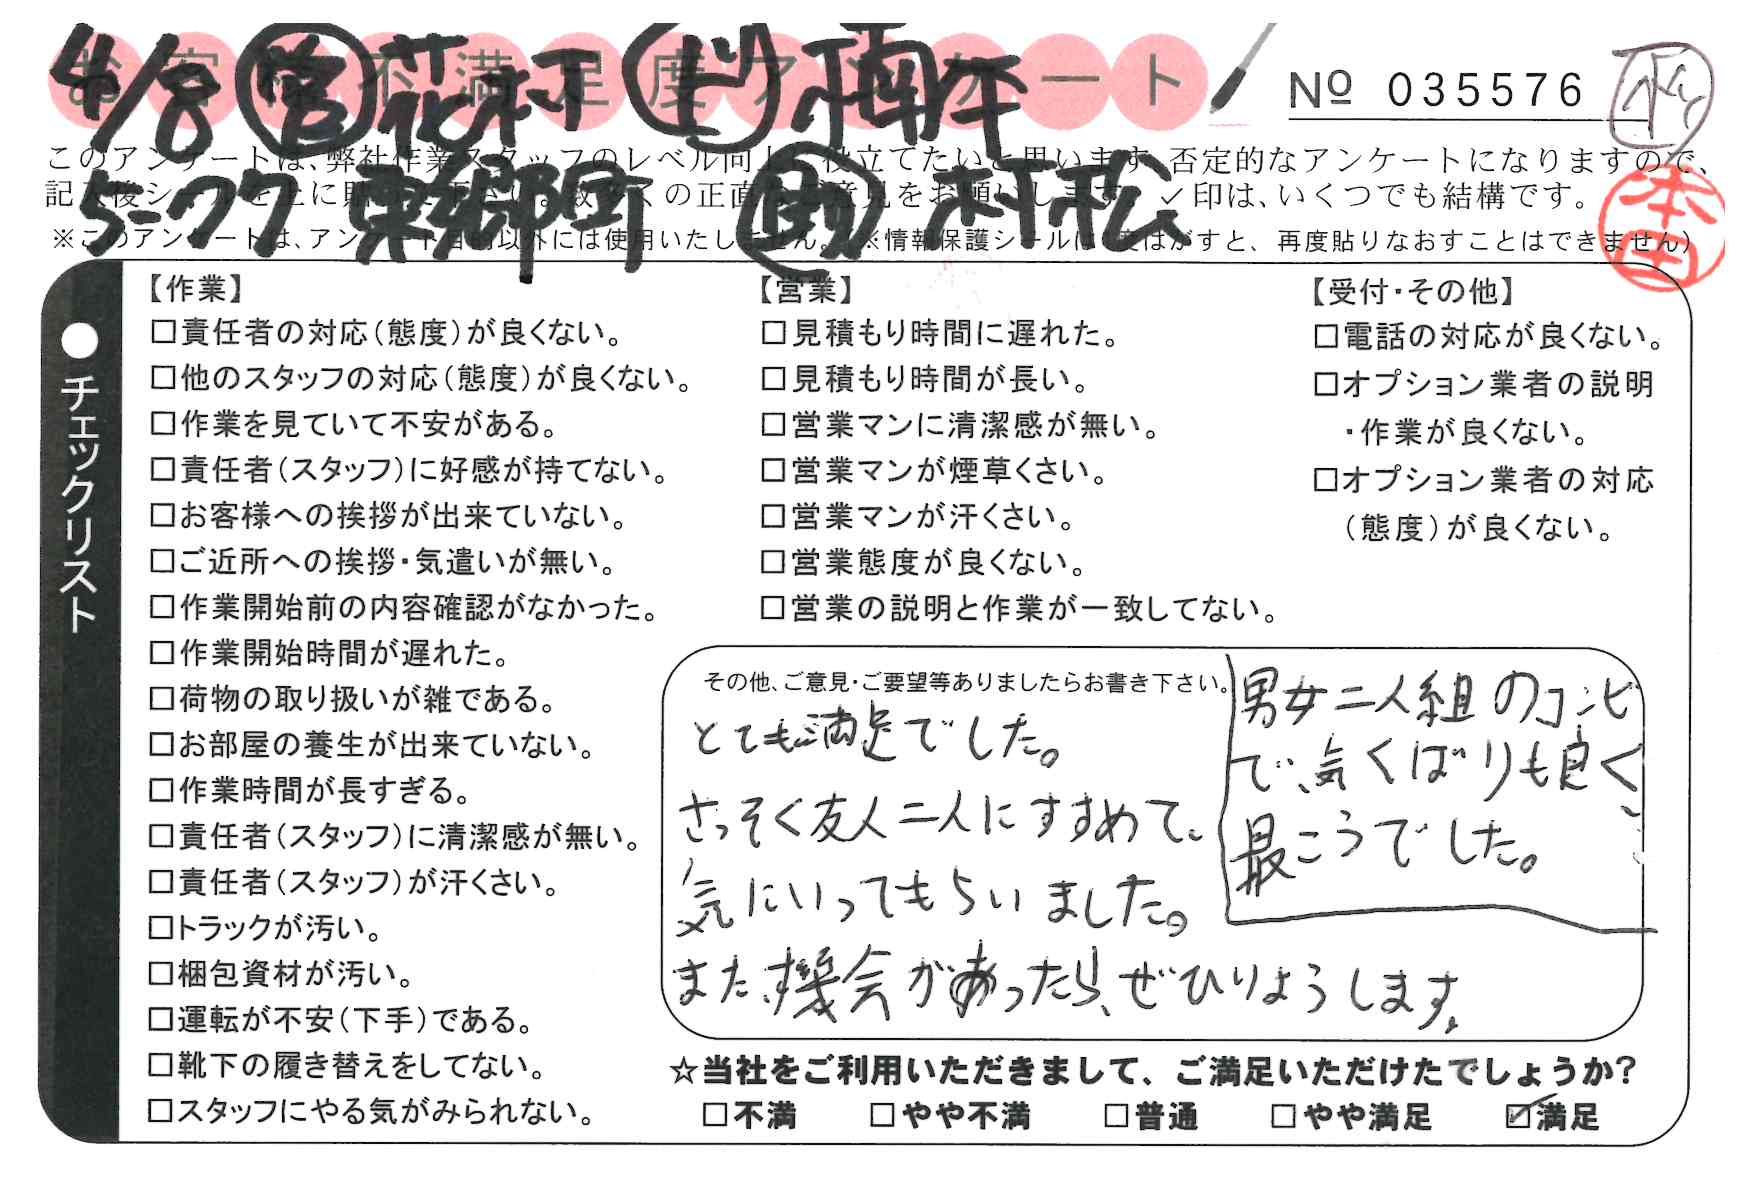 お客様不満足度アンケート
4/8 営 花村
Nº 035576
このアンケートは、弊社作業スタッフのレベル向上に役立てたいと思います。否定的なアンケートになりますので、
記入後シールを上に貼って下さい。数多くの正直なご意見をお願いします。✓印は、いくつでも結構です。
5-77 東郷町 助 村松
※このアンケートは、アンケート目的以外には使用いたしません。(※情報保護シールは1度はがすと、再度貼りなおすことはできません)
本田
●チェックリスト
【作業】
□責任者の対応(態度)が良くない。
□他のスタッフの対応(態度)が良くない。
□作業を見ていて不安がある。
□責任者(スタッフ)に好感が持てない。
□お客様への挨拶が出来ていない。
□ご近所への挨拶・気遣いが無い。
□作業開始前の内容確認がなかった。
□作業開始時間が遅れた。
□荷物の取り扱いが雑である。
□お部屋の養生が出来ていない。
□作業時間が長すぎる。
□責任者(スタッフ)に清潔感が無い。
□責任者(スタッフ)が汗くさい。
□トラックが汚い。
□梱包資材が汚い。
□運転が不安(下手)である。
□靴下の履き替えをしてない。
□スタッフにやる気がみられない。
【営業】
□見積もり時間に遅れた。
□見積もり時間が長い。
□営業マンに清潔感が無い。
□営業マンが煙草くさい。
□営業マンが汗くさい。
□営業態度が良くない。
□営業の説明と作業が一致してない。
【受付・その他】
□電話の対応が良くない。
□オプション業者の説明
・作業が良くない。
□オプション業者の対応
(態度)が良くない。
その他、ご意見・ご要望等ありましたらお書き下さい。
とても満足でした。
さっそく友人二人にすすめて、
気にいってもらいました。
また、機会があったら、ぜひりようします。
男女二人組のコンビ
で、気くばりも良く、
最こうでした。
☆当社をご利用いただきまして、ご満足いただけたでしょうか?
□不満 □やや不満 □普通 □やや満足 ☑満足